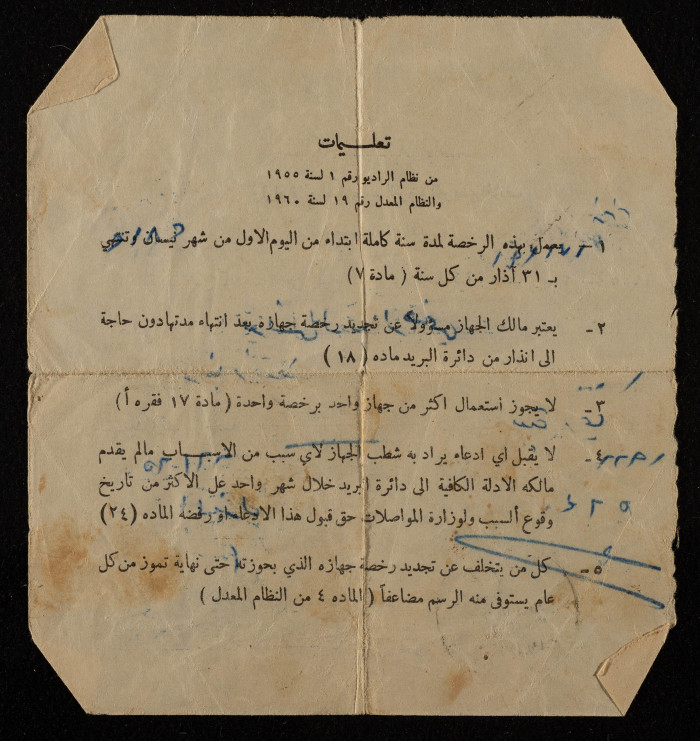 تعليمات
من نظام الراديو رقم ١ لسنة ١٩٥٥
والنظام المعدل رقم ١٩ لسنة ١٩٦٠
١ - يعمل بهذه الرخصة لمدة سنة كاملة ابتداء من اليوم الاول من شهر نيسان وتنتهي
بـ ٣١ آذار من كل سنة ( مادة ٧ )
٢ - يعتبر مالك الجهاز مسؤولا عن تجديد رخصة جهازه بعد انتهاء مدتها دون حاجة
الى انذار من دائرة البريد ماده ( ١٨ )
٣ - لا يجوز استعمال اكثر من جهاز واحد برخصة واحدة ( مادة ١٧ فقره أ )
٤ - لا يقبل اي ادعاء يراد به شطب الجهاز لاي سبب من الاسبـــاب مالم يقدم
مالكه الادلة الكافية الى دائرة البريد خلال شهر واحد على الاكثر من تاريخ
وقوع السبب ولوزارة المواصلات حق قبول هذا الادعاء او رفضه الماده ( ٢٤ )
٥ - كل من يتخلف عن تجديد رخصة جهازه الذي بحوزته حتى نهاية تموز من كل
عام يستوفى منه الرسم مضاعفاً ( الماده ٤ من النظام المعدل )